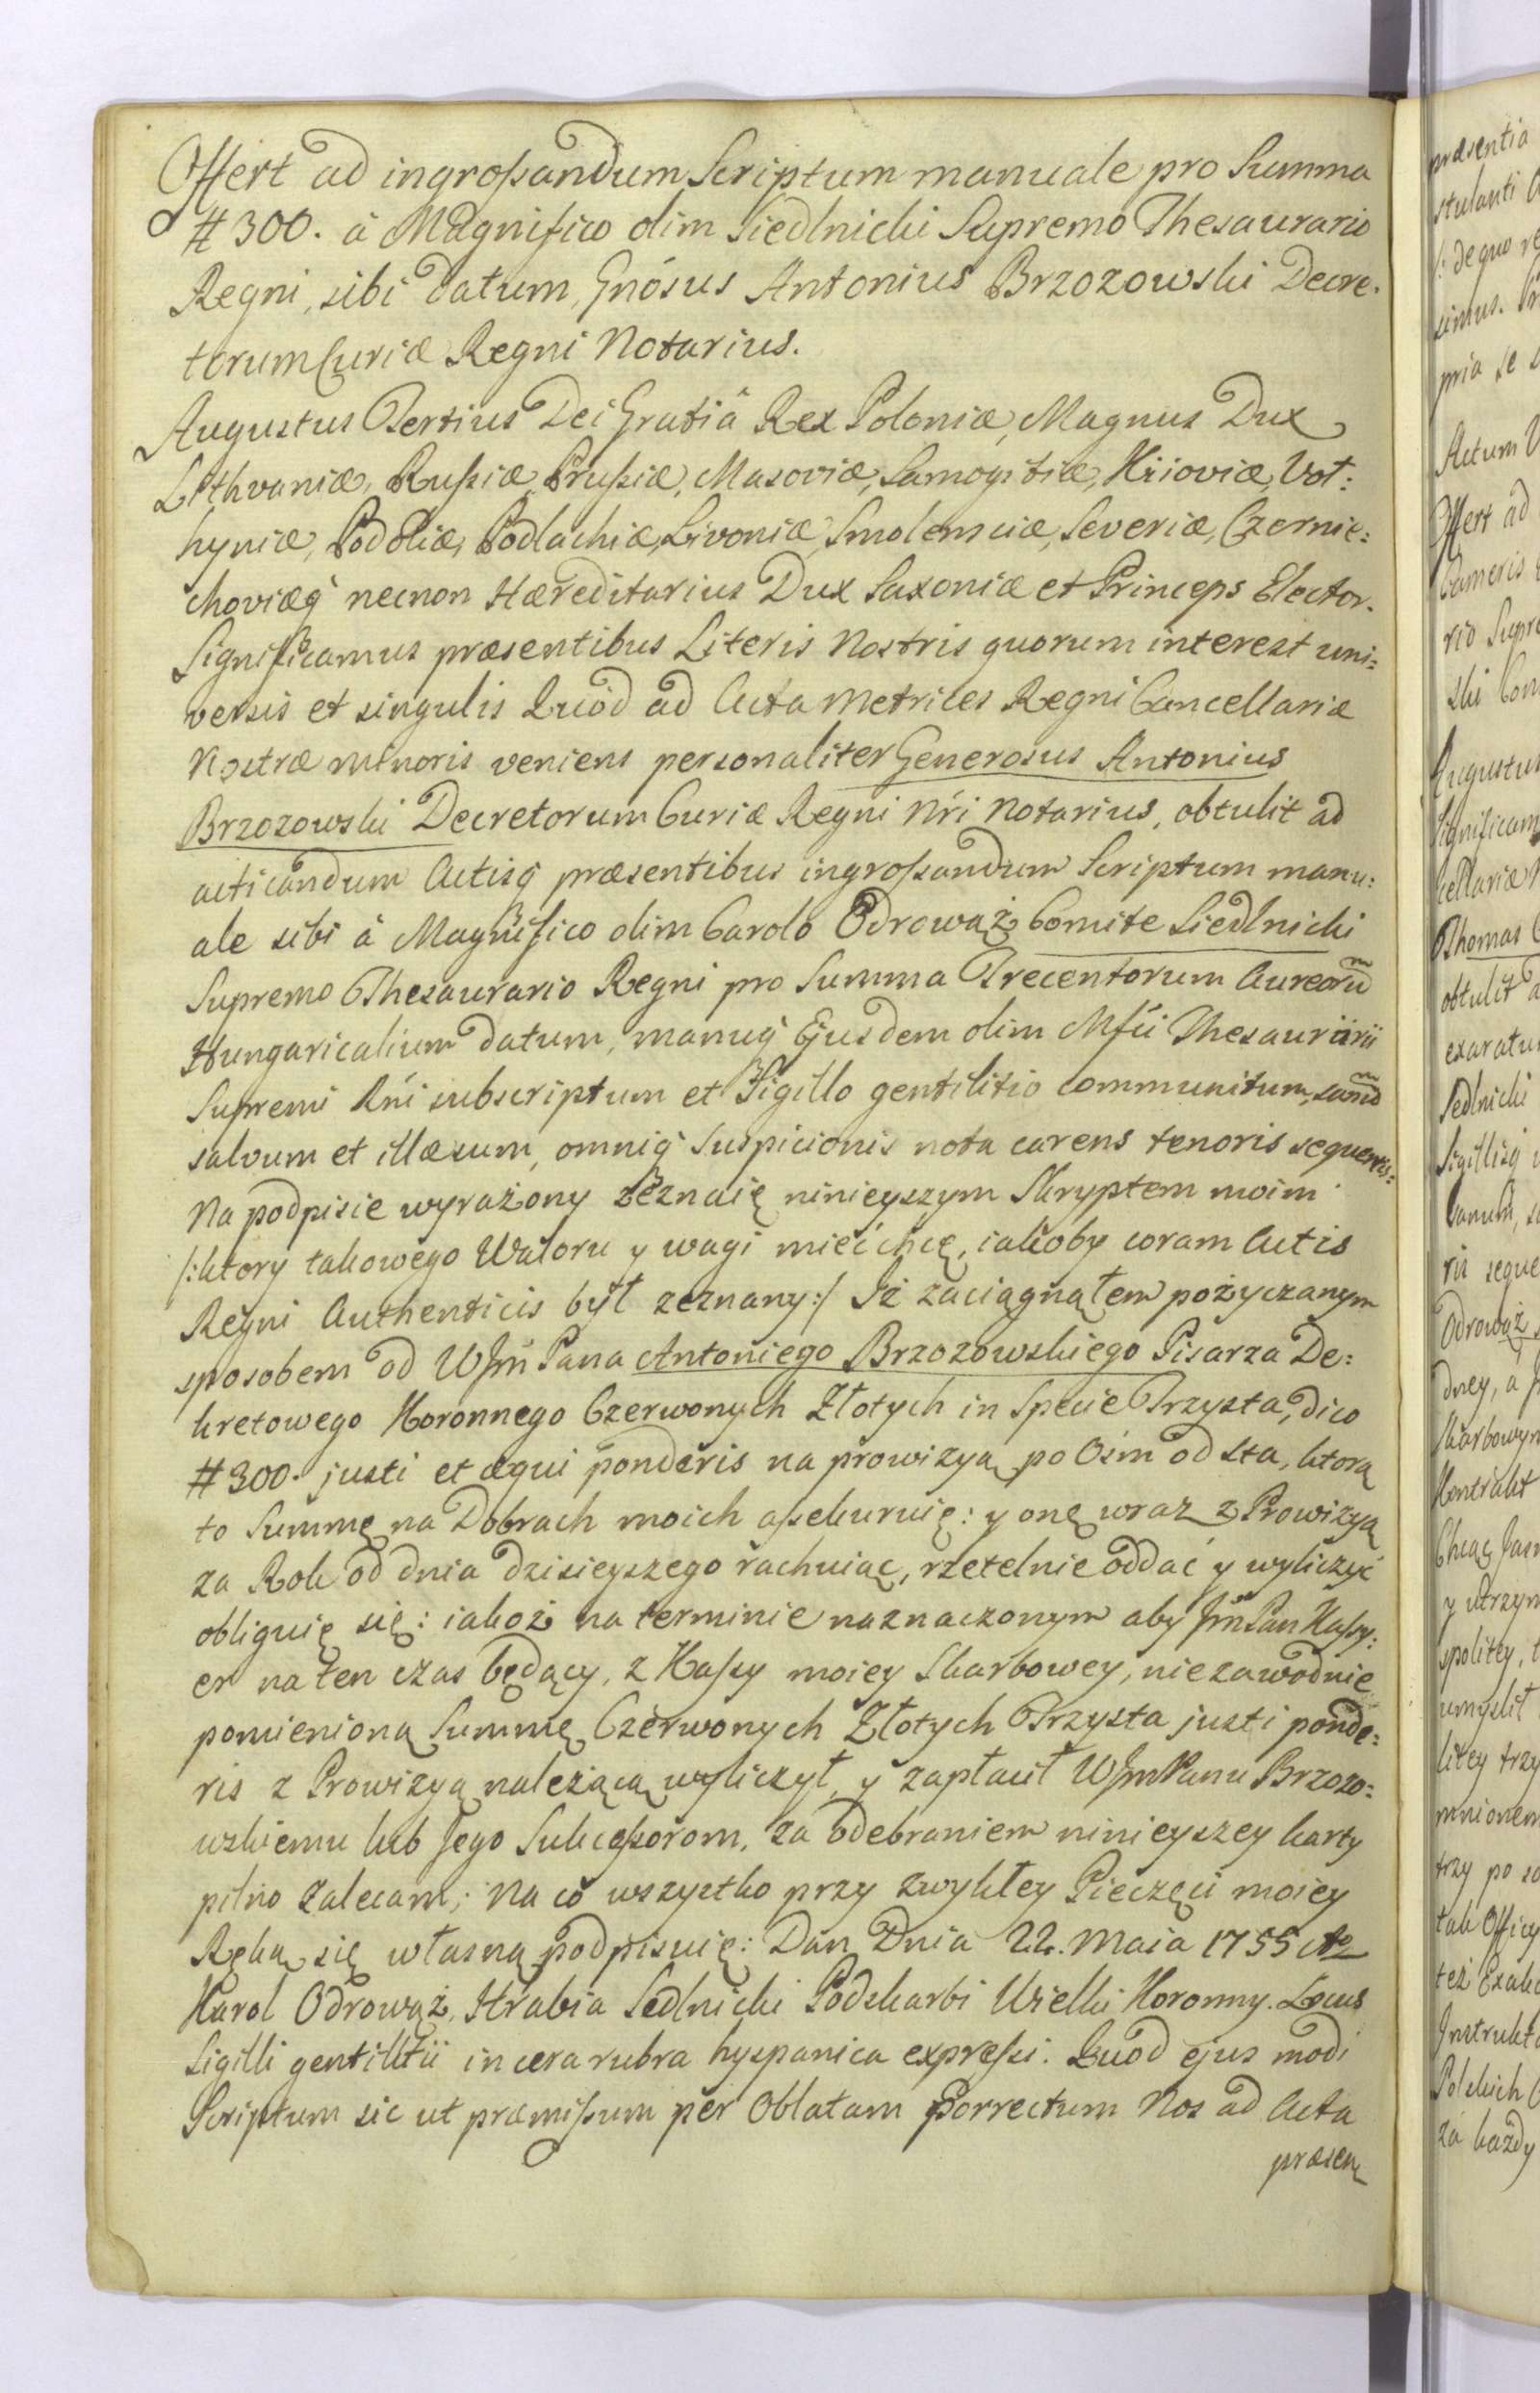 Offert ad ingrossandum Scriptum manuale pro Summa
# 300. â Magnifico olim Siedlnicki Supremo Thesaurario
Regni, sibi datum, Gnósus Antonius Brzozowski Decre-
torum Curiæ Regni Notarius.
Augustus Tertius Dei Gratiâ Rex Poloniæ, Magnus Dux
Lithvaniæ, Russiæ, Prussiæ, Masoviæ, Samogitiæ, Kijoviæ, Vol:
hyniæ, Podoliæ, Podlachiæ, Livoniæ, Smolensciæ, Severiæ, Czernie:
choviæq́ necnon Hæreditarius Dux Saxoniæ et Princeps Elector.
Significamus præsentibus Literis Nostris quorum interest uni:
versis et singulis Quod ad Acta Metrices Regni Cancellariæ
Nostræ minoris veniens personaliter Generosus Antonius
Brzozowski Decretorum Curiæ Regni Nri Notarius, obtulit ad
acticandum Actisq́ præsentibus ingrossandum Scriptum manu:
ale sibi â Magnifico olim Carolo Odrowąż Comite Siedlnicki
Supremo Thesaurario Regni pro Summa Trecentorum Aureorũ
Hungaricalium datum, manuq́ Ejusdem olim Mfci Thesaurarii
Supremi Rni subscriptum et Sigillo gentilitio communitum, sanũ
salvum et illæsum, omniq́ Suspicionis nota carens tenoris sequentis:
Na podpisie wyrażony zeznaię ninieyszym Skryptem moim
/:ktory takowego Waloru y wagi mieć chcę, iakoby coram Actis
Regni Authenticis był zeznany:/ Iż zaciągnąłem pożyczanym
sposobem od WJm̃ Pana Antoniego Brzozowskiego Pisarza De:
kretowego Koronnego Czerwonych Złotych in Specie Trzysta, dico
# 300. justi et æqui ponderis na prowizyą po Ośm od sta, ktorą
to Summę na Dobrach moich assekuruię: y onę wraz z Prowizyą
za Rok od dnia dzisieyszego rachuiąc, rzetelnie oddać y wyliczyć
obliguię się: iakoż na terminie naznaczonym aby Jm̃ Pan Kassy:
er na ten czas będący, z Kassy moiey Skarbowey, niezawodnie
pomienioną Summę Czerwonych Złotych Trzysta justi ponde:
ris z Prowizyą należącą wyliczył, y zapłacił WJm Panu Brzozo:
wskiemu lub Jego Sukcessorom, za odebraniem ninieyszey karty
pilno zalecam; Na co wszystko przy zwykłey Pieczęci moiey
Ręką się własną podpisuię: Dan Dnia 22. Maia 1755 Ao
Karol Odrowąż, Hrabia Sedlnicki Podskarbi Wielki Koronny. Locus
Sigilli gentilitii in cera rubra hyspanica expressi. Quod ejus modi
Scriptum sic ut præmissum per Oblatam Porrectum Nos ad Acta
præsen
præsentia
stulanti
/: de quo re
simus.
pria se s
Actum
Offert ad
Cameris
rio Supre
ski Com
Augustus
Significam
cellariæ
Thomas
obtulit a
exaratu
Sedlnicki
Sigillisq́
sanum, s
ris seque
Odrowąż
dney, a
Skarbowym
Kontrakt
Chcąc Jasn
y utrzym
spolitey,
umyslił
litey trzy
mnionem
trzy po so
tak Officy
też Exak
Instrukt
Polskich
za każdy